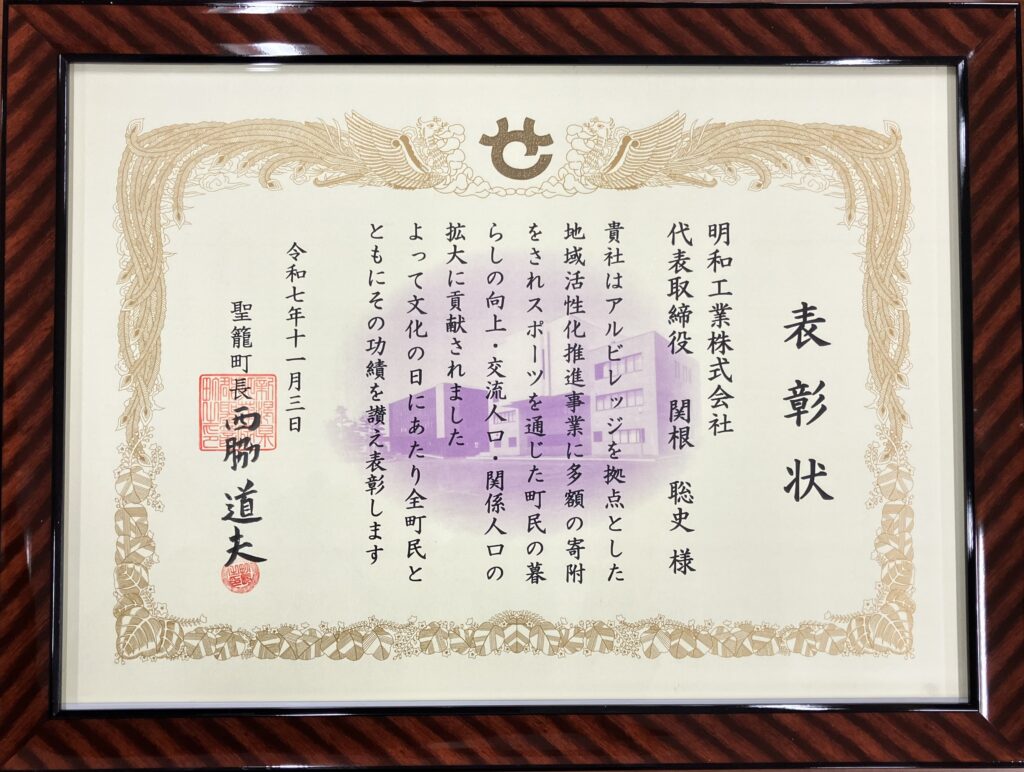 表彰状
明和工業株式会社
代表取締役 関根 聡史 様
貴社はアルビレッジを拠点とした
地域活性化推進事業に多額の寄附
をされスポーツを通じた町民の暮
らしの向上・交流人口・関係人口の
拡大に貢献されました
よって文化の日にあたり全町民と
ともにその功績を讃え表彰します
令和七年十一月三日
聖籠町長 西脇道夫